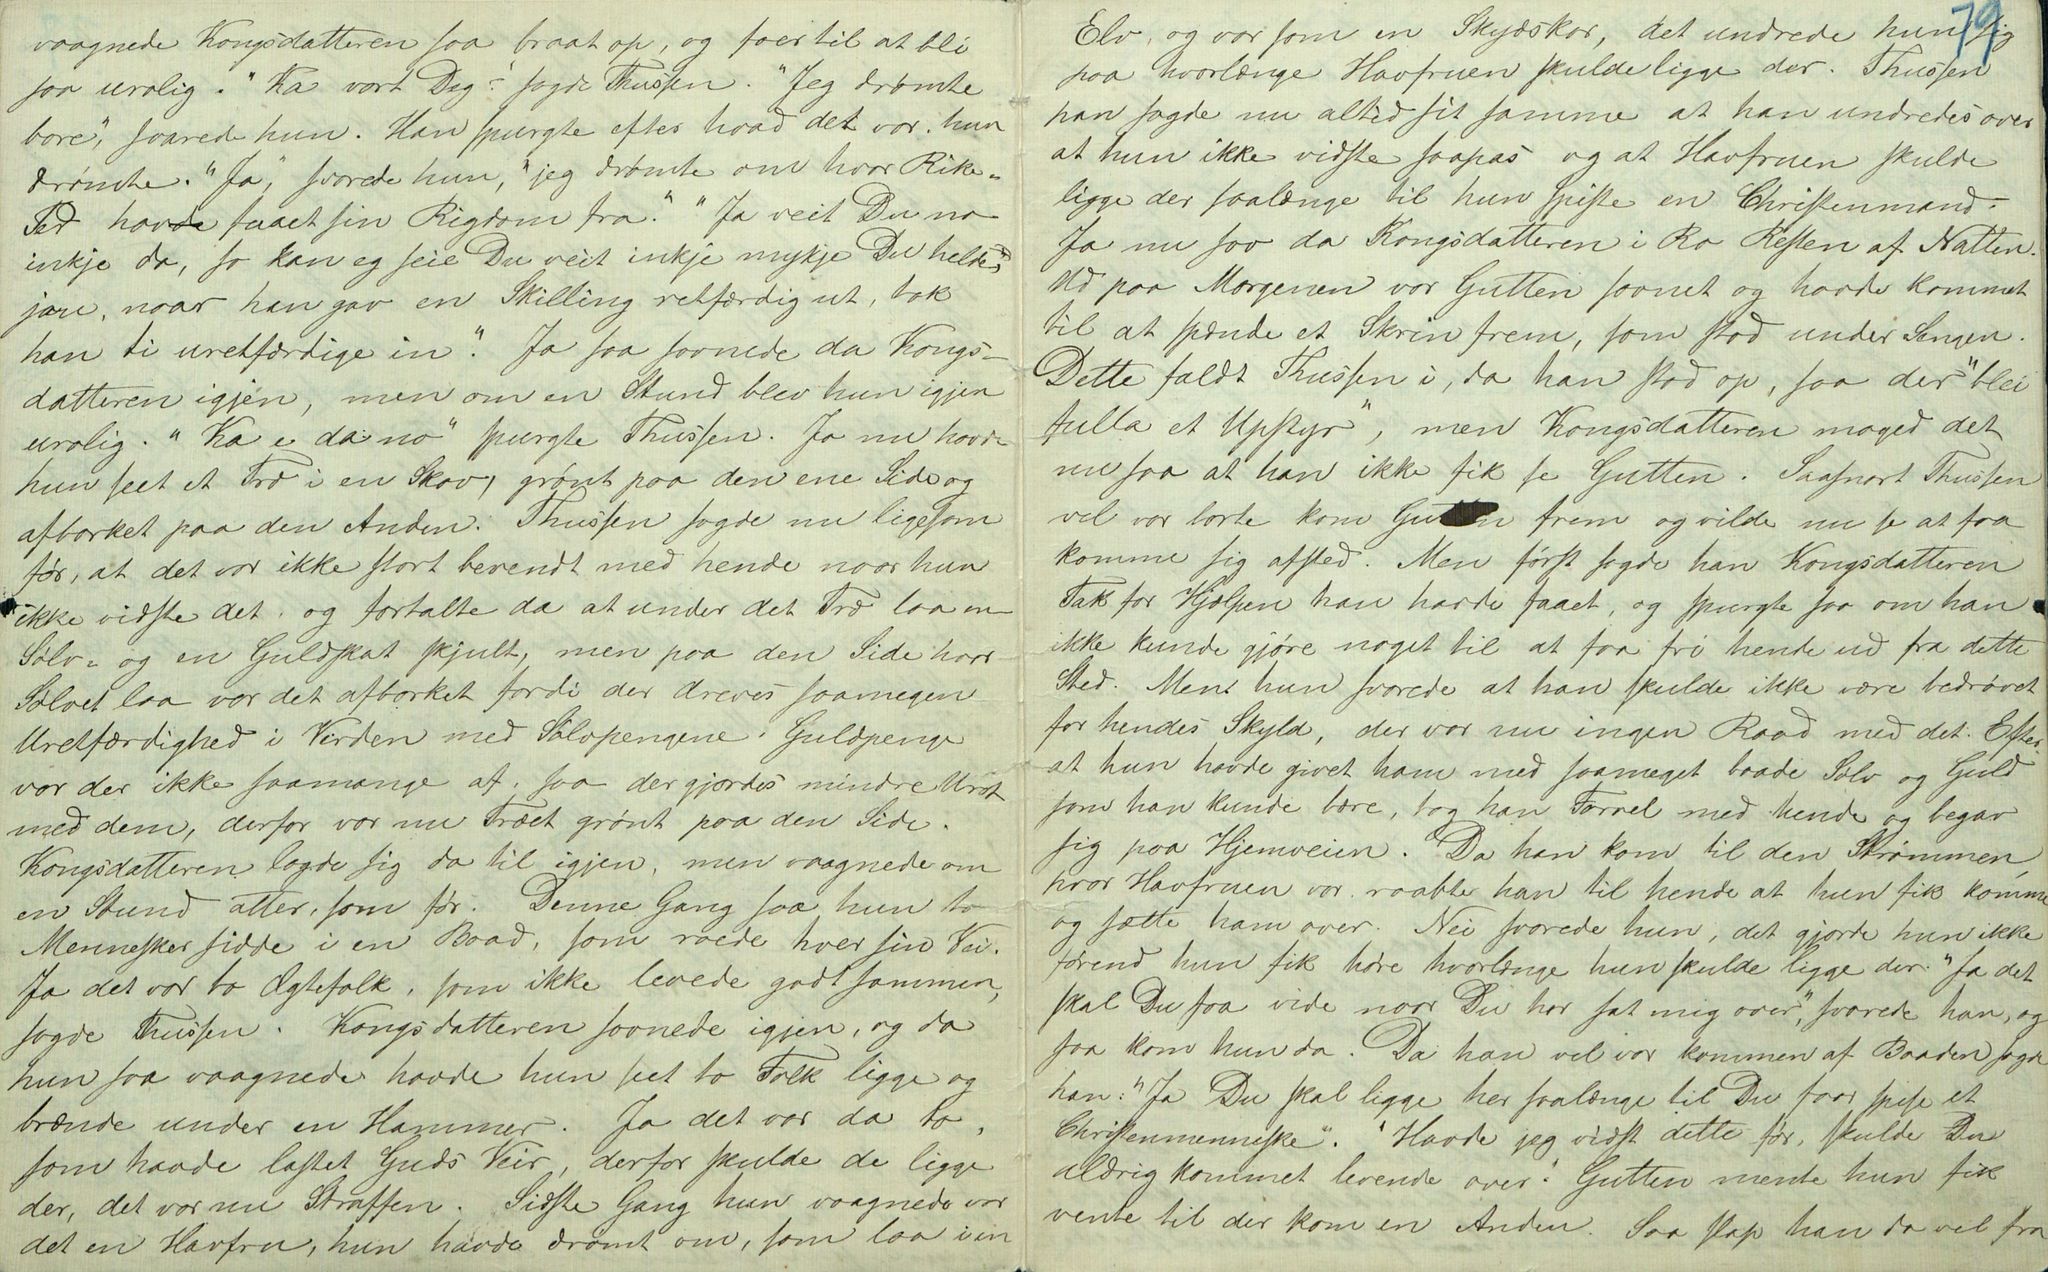 vaagnede Kongsdatteren saa braat op, og foer til at bli
saa urolig. "Ka vart Deg" sagde Thussen. "Jeg drømte
bare", svarede hun. Han spurgte efter hvad det var hun
drømte. "Ja", svarede hun, "jeg drømte om hvor Rike-
Per havde faaet sin Rigdom fra." "Ja veit Du no
inkje da, so kan eg seie Du veit inkje mykje Du helder
jau, naar han gav en Skilling retfærdig ut, tok
han ti uretfærdige in". Ja saa sovnede da Kongs-
datteren igjen, men om en Stund blev hun igjen
urolig. "Ka e da no" spurgte Thussen. Ja nu havde
hun seet et Træ i en Skov, grønt paa den ene Side og
afbarket paa den Anden. Thussen sagde nu ligesom
før, at det var ikke stort bevendt med hende naar hun
ikke vidste det, og fortalte da at under det Træ laa en
Sølv- og en Guldskat skjult, men paa den Side hvor
Sølvet laa var det afbarket fordi der dreves saamegen
Uretfærdighed i Verden med Sølvpengene. Guldpenge
var der ikke saamange af, saa der gjordes mindre Uret
med dem, derfor var nu Træet grønt paa den Side.
Kongsdatteren lagde sig da til igjen, men vaagnede om
en Stund atter, som før. Denne Gang saa hun to
Mennesker sidde i en Baad, som roede hver sin Vei.
Ja det var to Ægtefolk, som ikke levede godt sammen,
sagde Thussen. Kongsdatteren sovnede igjen, og da
hun saa vaagnede havde hun seet to Folk ligge og
brænde under en Hammer. Ja det var da to,
som havde lastet Guds Veir, derfor skulde de ligge
der, det var nu Straffen. Sidste Gang hun vaagnede var
det en Havfru, hun havde drømt om, som laa i en
79
Elv, og var som en Skydskar, det undrede hun sig
paa hvorlænge Havfruen skulde ligge der. Thussen
han sagde nu altid sit samme at han undredes over
at hun ikke vidste saapas og at Havfruen skulde
ligge der saalænge til hun spiste en Christenmand.
Ja nu sov da Kongsdatteren i Ro Resten af Natten.
Ud paa Morgenen var Gutten sovnet og havde kommet
til at spænde et Skrin frem, som stod under Sengen.
Dette faldt Thussen i, da han stod op, saa der "blei
fulla et Upstyr", men Kongsdatteren maged det
nu saa at han ikke fik se Gutten. Saasnart Thussen
vel var borte kom Gutten frem og vilde nu se at faa
komme sig afsted. Men først sagde han Kongsdatteren
Tak for Hjælpen han havde faaet, og spurgte saa om han
ikke kunde gjøre noget til at faa fri hende ud fra dette
Sted. Men hun svarede at han skulde ikke være bedrøvet
for hendes Skyld, der var nu ingen Raad med det. Efter-
at hun havde givet ham med saameget baade Sølv og Guld
som han kunde bære, tog han Farvel med hende og begav
sig paa Hjemveien. Da han kom til den Strømmen
hvor Havfruen var raabte han til hende at hun fik komme
og sætte ham over. Nei svarede hun, det gjorde hun ikke
førend hun fik høre hvorlænge hun skulde ligge der. "Ja det
skal Du faa vide naar Du har sat mig over", svarede han, og
saa kom hun da. Da han vel var kommen af Baaden sagde
han: "Ja Du skal ligge her saalænge til Du faar spise et
Christenmenneske". "Havde jeg vidst dette før, skulde Du
aldrig kommet levende over". Gutten mente hun fik
vente til der kom en Anden. Saa slap han da vel fra